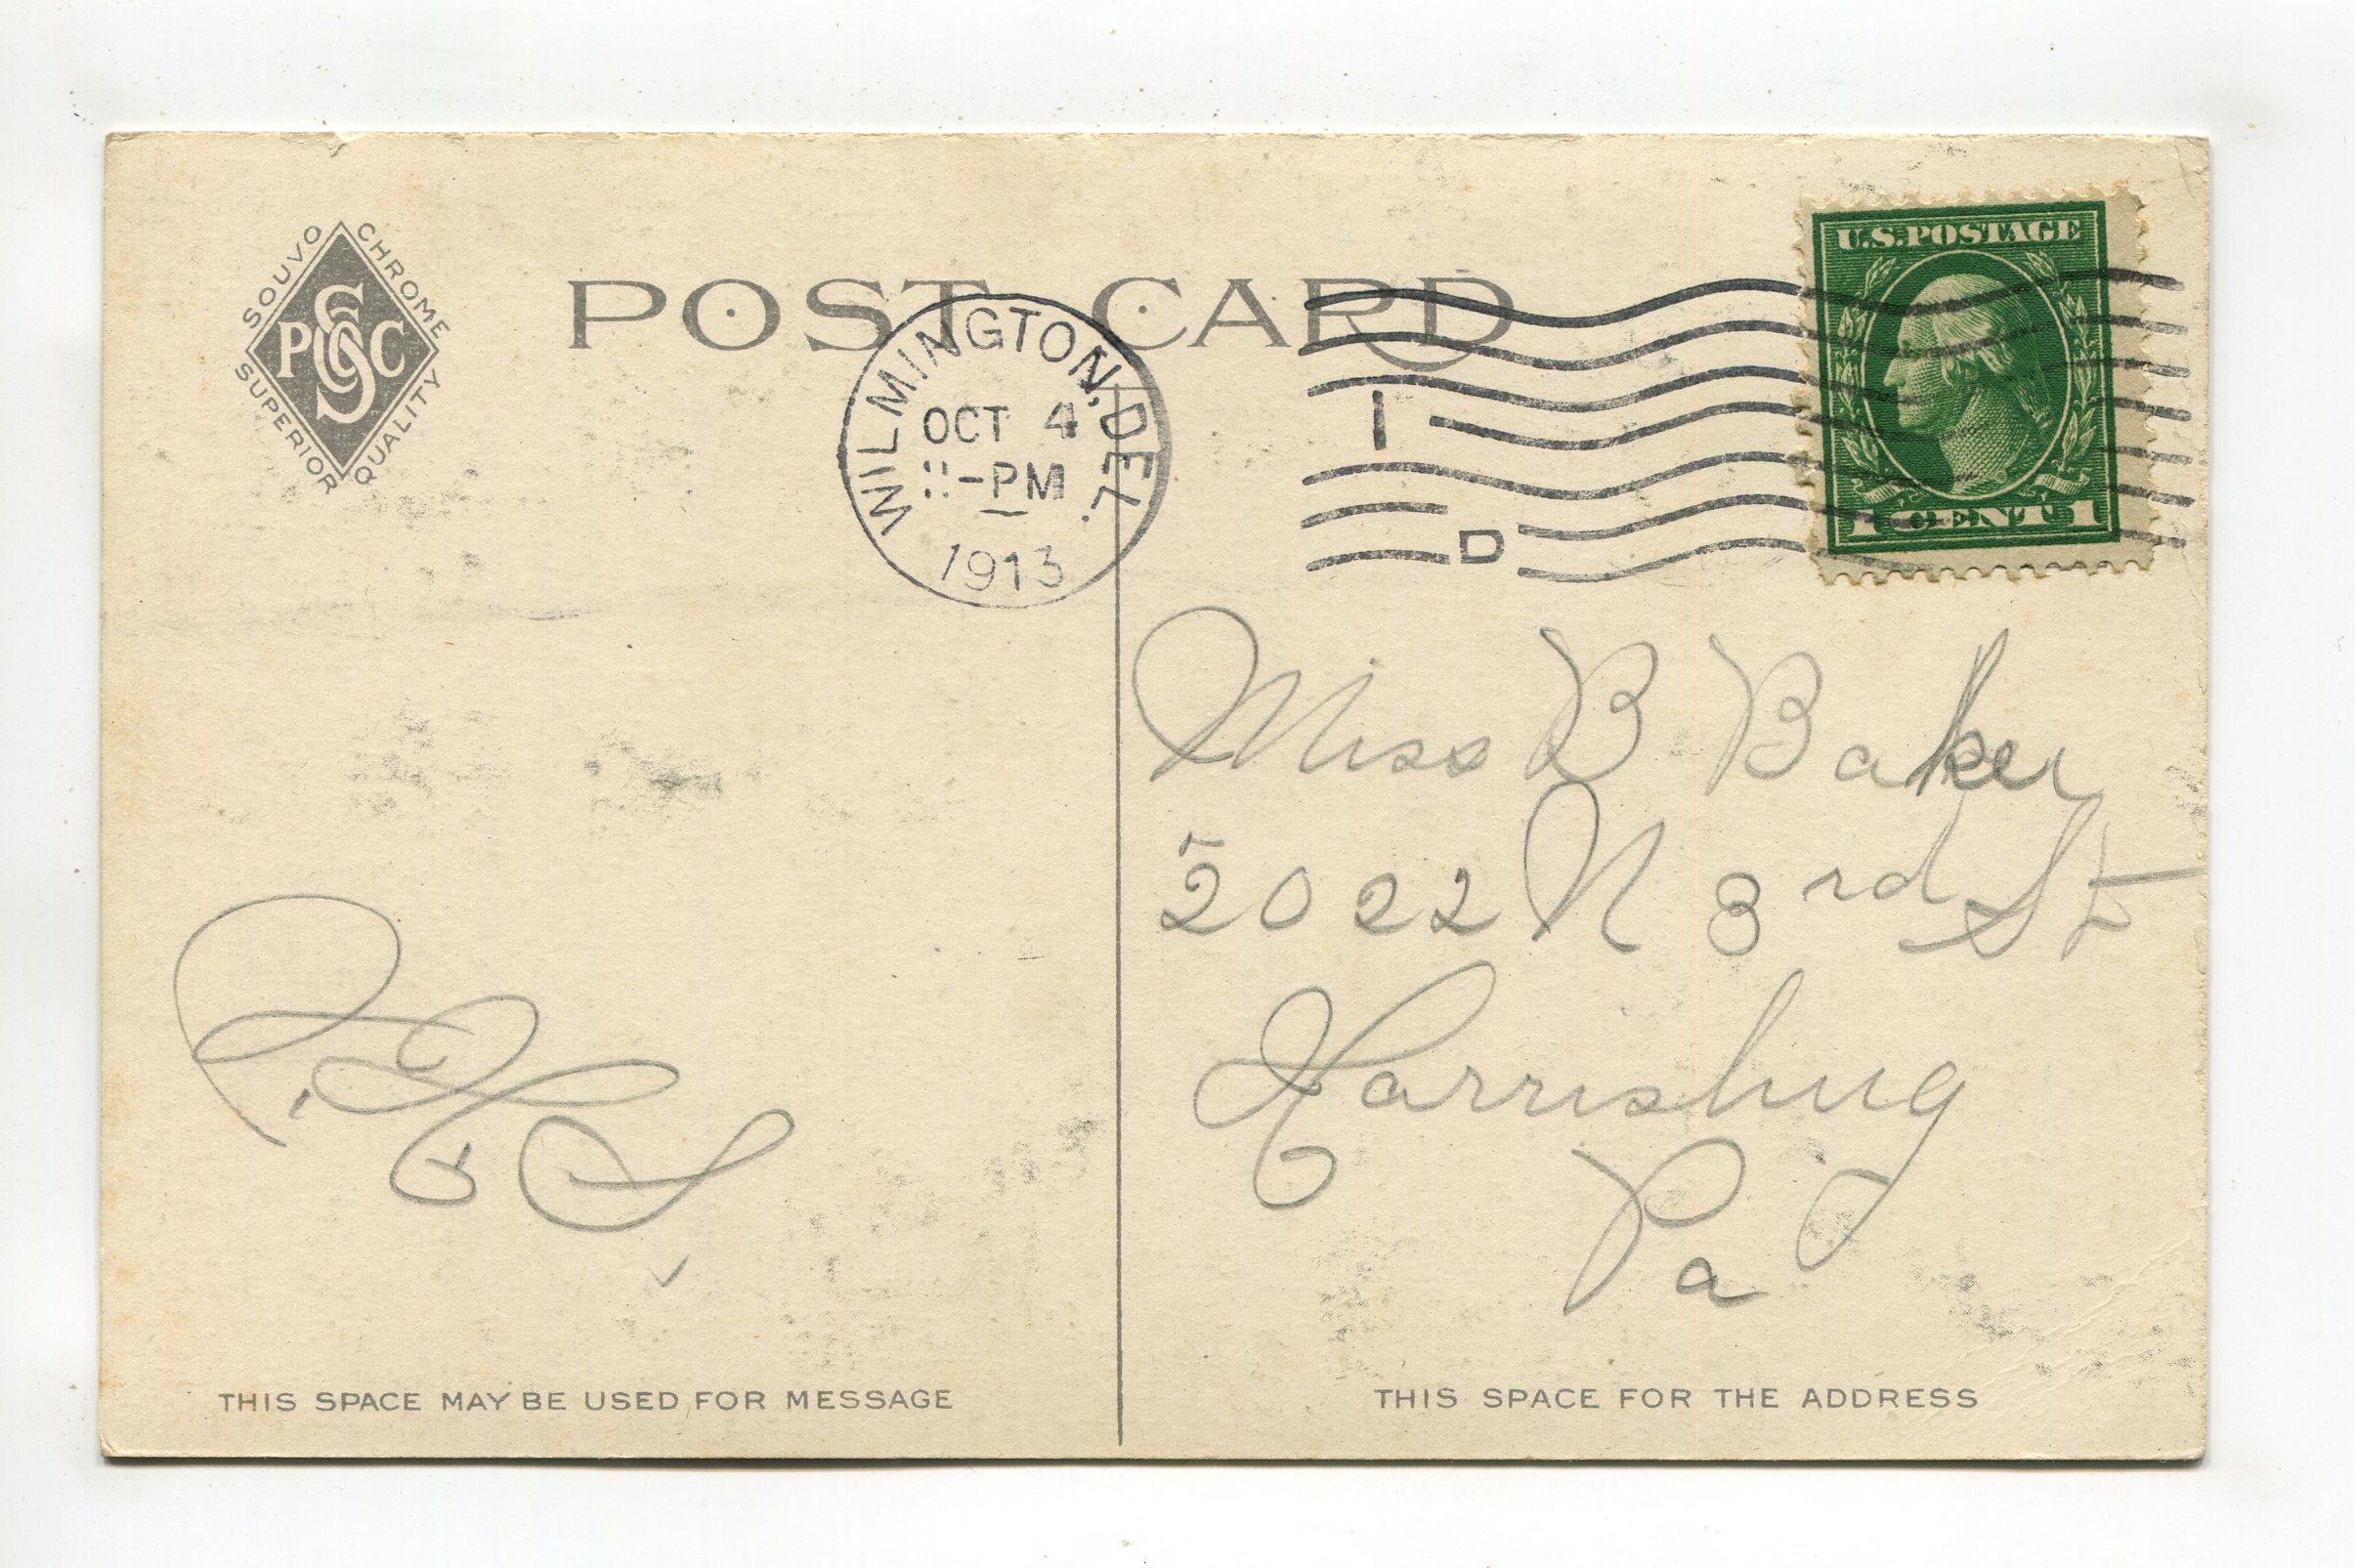 SOUVO CHROME
P S C
SUPERIOR QUALITY
POST CARD
WILMINGTON, DEL.
OCT 4
-PM
1913
1
D
U.S. POSTAGE
1 CENT 1
Miss B. Baker
2022 N 3rd St
Harrisburg
Pa
THIS SPACE MAY BE USED FOR MESSAGE
THIS SPACE FOR THE ADDRESS